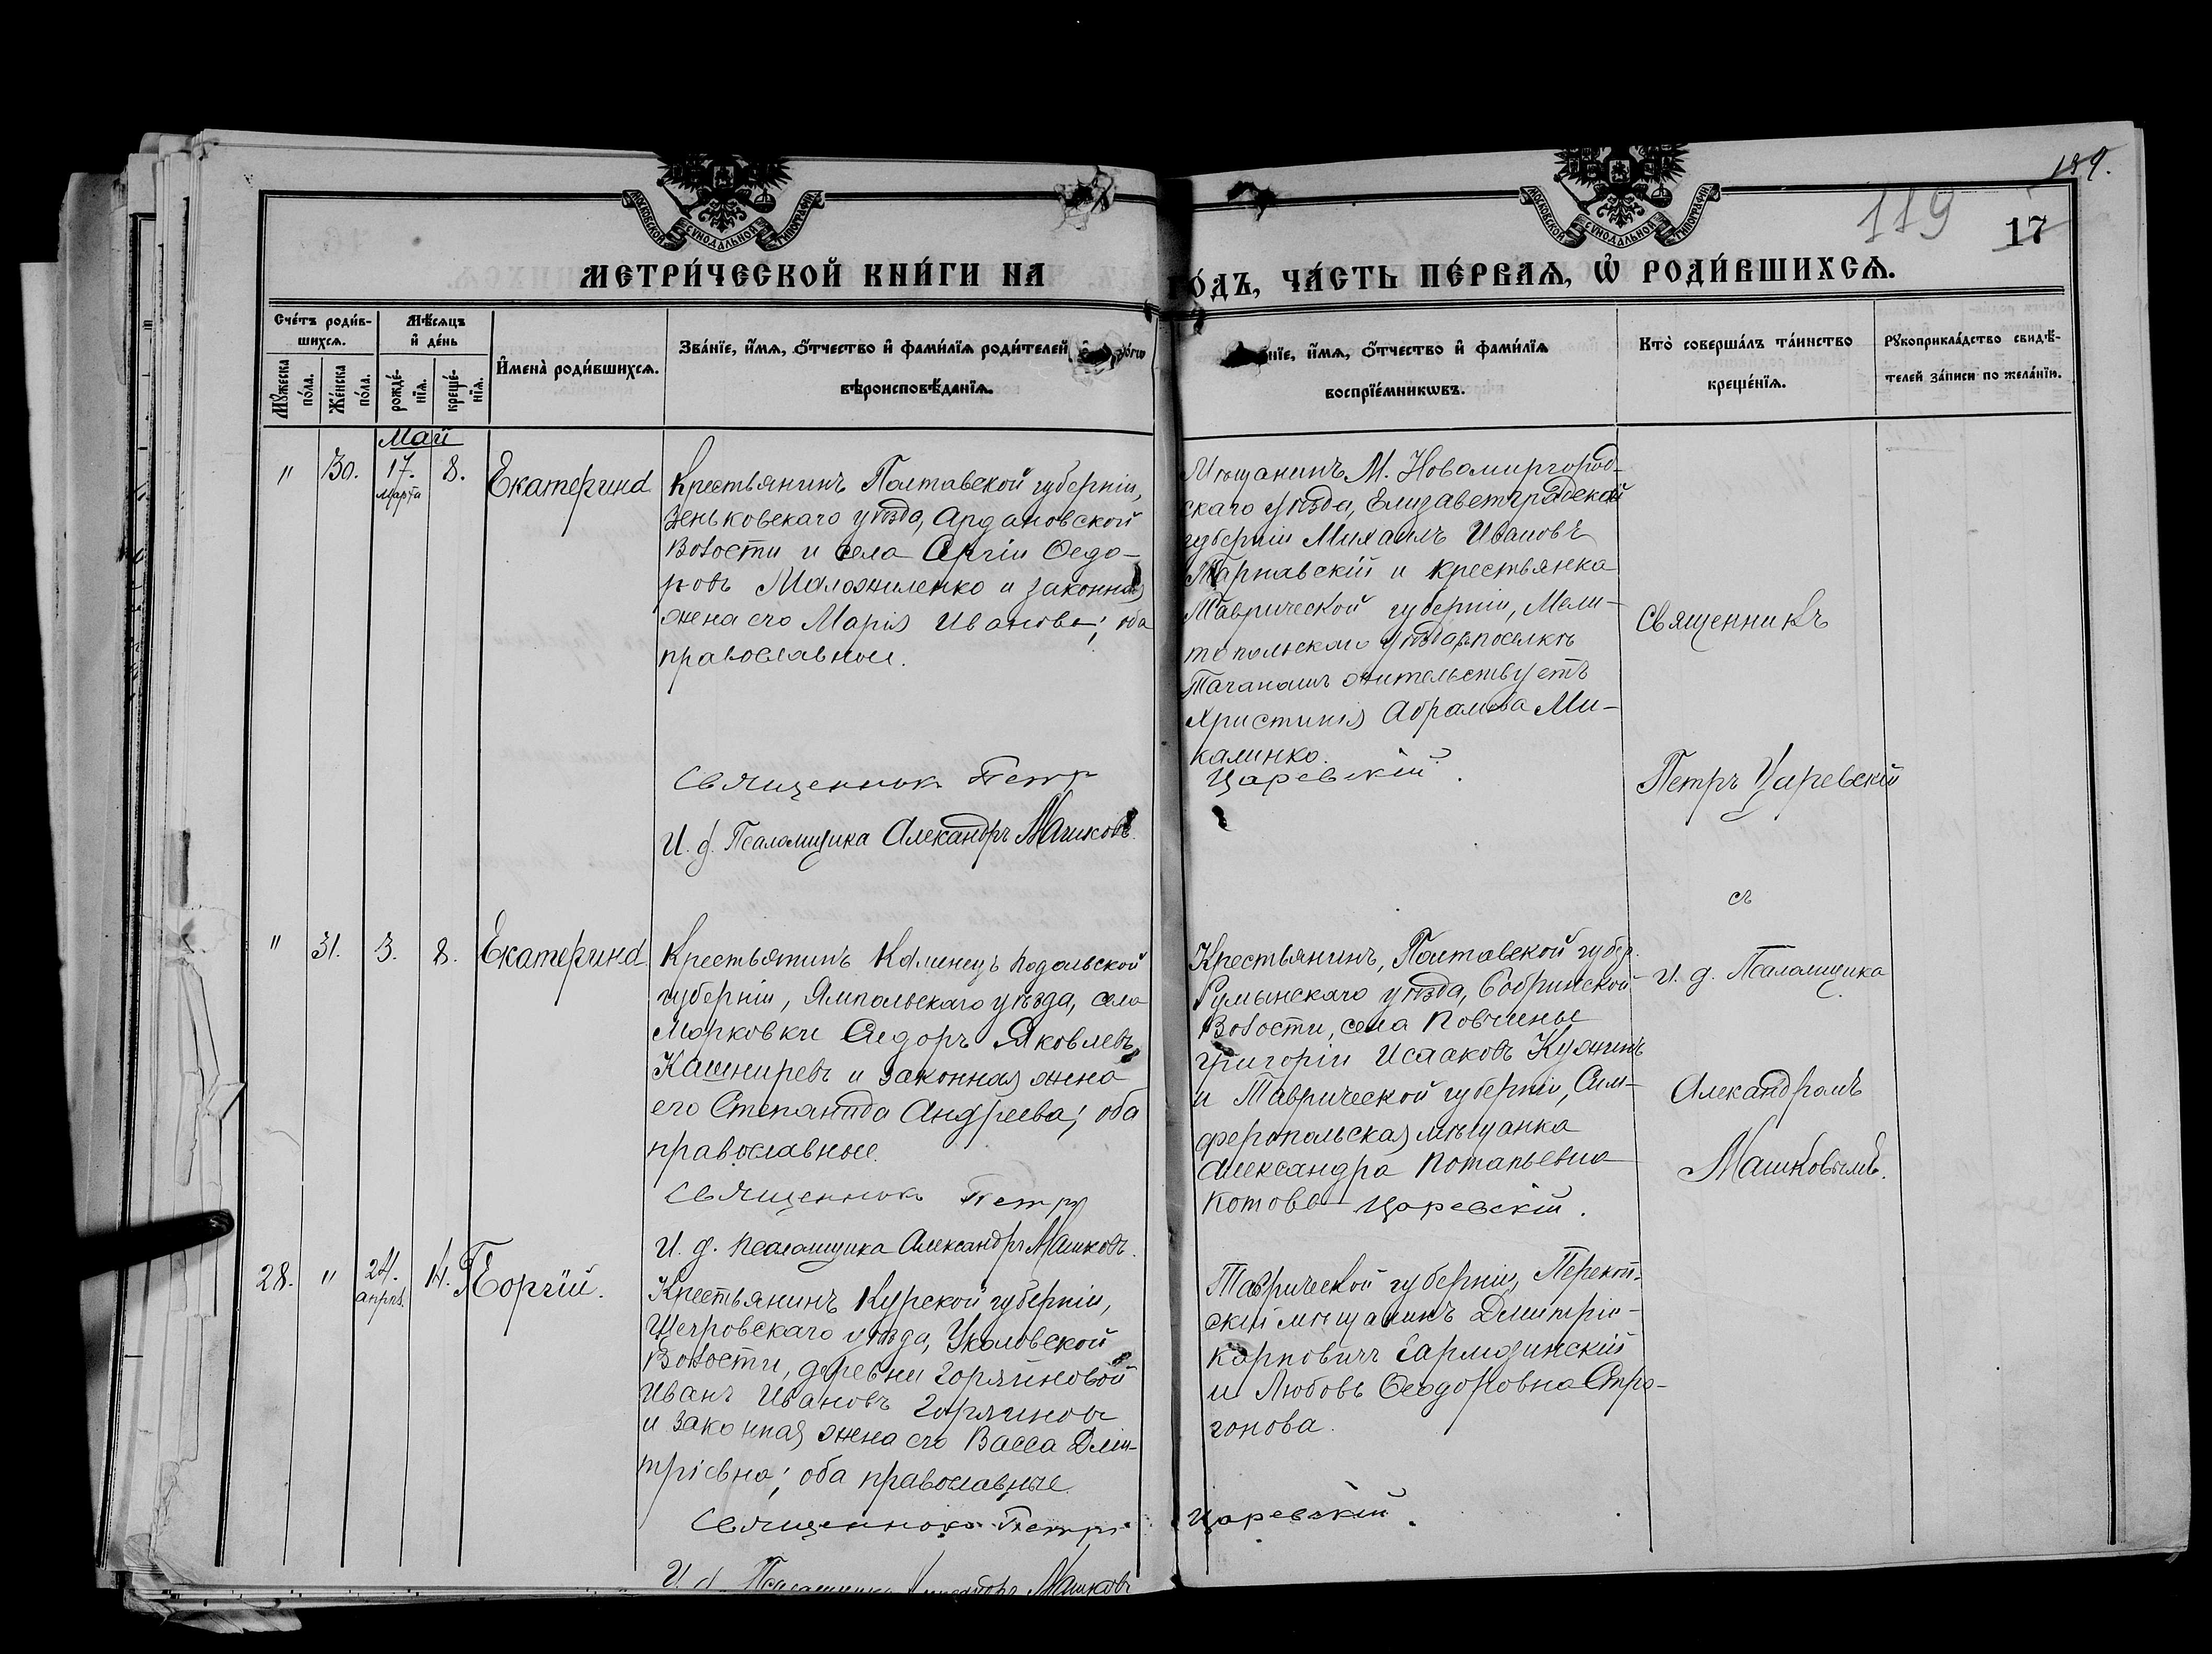 189.
119
17
МОСКОВСКОЙ СѴНОДАЛЬНОЙ ТИПОГРАФІИ
МОСКОВСКОЙ СѴНОДАЛЬНОЙ ТИПОГРАФІИ
МЕТРИ́ЧЕСКОЙ КНИ́ГИ НА
ГО́ДЪ, ЧА́СТЬ ПЕ́РВАѦ, Ѡ҆ РОДИ́ВШИХСѦ.
Сче́тъ роди́в-
шихсѧ.
Мꙋ́жеска по́ла.
Же́нска по́ла.
Мѣ́сѧцъ
и҆ де́нь
рожде́-нїѧ.
креще́-нїѧ.
И҆мена̀ роди́вшихсѧ.
Зва́нїе, и҆́мѧ, ѻ҆́тчество и҆ фами́лїѧ роди́телей
вѣроисповѣ́данїѧ.
нїе, и҆́мѧ, ѻ҆́тчество и҆ фами́лїѧ
воспрїе́мникѡвъ.
Кто̀ соверша́лъ та́инство
креще́нїѧ.
Рꙋкоприкла́дство свидѣ́-
телей за́писи по жела́нїю.
Май
" 30. 17. марта 8. Екатерина
Крестьянинъ Полтавской губерніи,
Зеньковскаго уѣзда, Ардановской
Волости и села Сергіи Ѳедо-
ровъ Маложиленко и законная
жена его Марія Иванова; оба
православные.
Священник Петр
И. д. Псаломщика Александръ Машковъ.
Мѣщанинъ М. Новомиргород-
скаго уѣзда, Елизаветградской
губерніи Михаилъ Ивановъ
Тарнавскій и крестьянка
Таврической губерніи, Мели-
топольскаго уѣзда, поселкѣ
Таганашъ жительствуетъ
Христинія Абрамова Ми-
калинко.
Царевскій.
Священникъ
Петръ Царевскій
съ
И. д. Псаломщика
Александромъ
Машковымъ.
" 31. 3. 8. Екатерина
Крестьянинъ Каменецъ Подольской
губерніи, Ямпольскаго уѣзда, села
Марковки Ѳедоръ Яковлевъ
Кашниревъ и законная жена
его Степанида Андреева; оба
православные.
Священник Петр
И. д. псаломщика Александръ Машковъ.
Крестьянинъ, Полтавской губер.
Румынскаго уѣзда, Бобринской
Волости, села Повчены
Григорій Исааковъ Кужинъ
и Таврической губерніи, Сим-
феропольская мѣщанка
Александра Потапьевна
Котова Царевскій.
28. " 24. апрѣ. 14. Георгій.
Крестьянинъ Курской губерніи,
Щегровскаго уѣзда, Уколовской
Волости, деревни Горяйновой
Иванъ Ивановъ Горяиновъ
и законная жена его Васса Дми-
тріевна; оба православные.
Священник Петръ
И. д. Псаломщика Александръ Машковъ
Таврической губерніи, Перекоп-
скій мѣщанинъ Дмитрій
Карповичъ Сармудинскій
и Любовь Ѳеодоровна Стро-
гонова.
Царевскій.